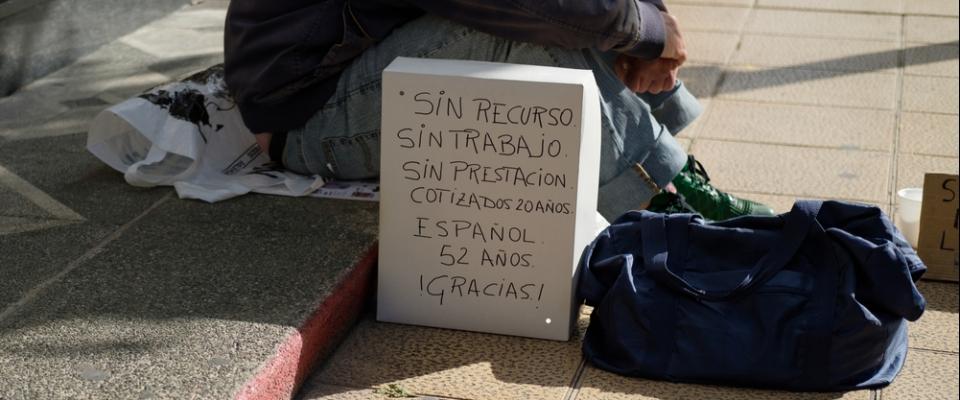 SIN RECURSO.
SIN TRABAJO.
SIN PRESTACION.
COTIZADOS 20 AÑOS.
ESPAÑOL.
52 AÑOS.
!GRACIAS.!